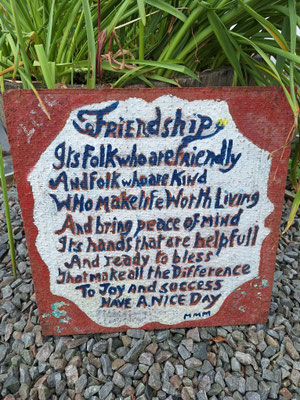 Friendship
Its folk who are friendly
And folk who are kind
Who make life Worth Living
And bring peace of mind
Its hands that are helpfull
And ready to bless
That make all the Difference
To Joy and success
HAVE A NICE DAY
MMM